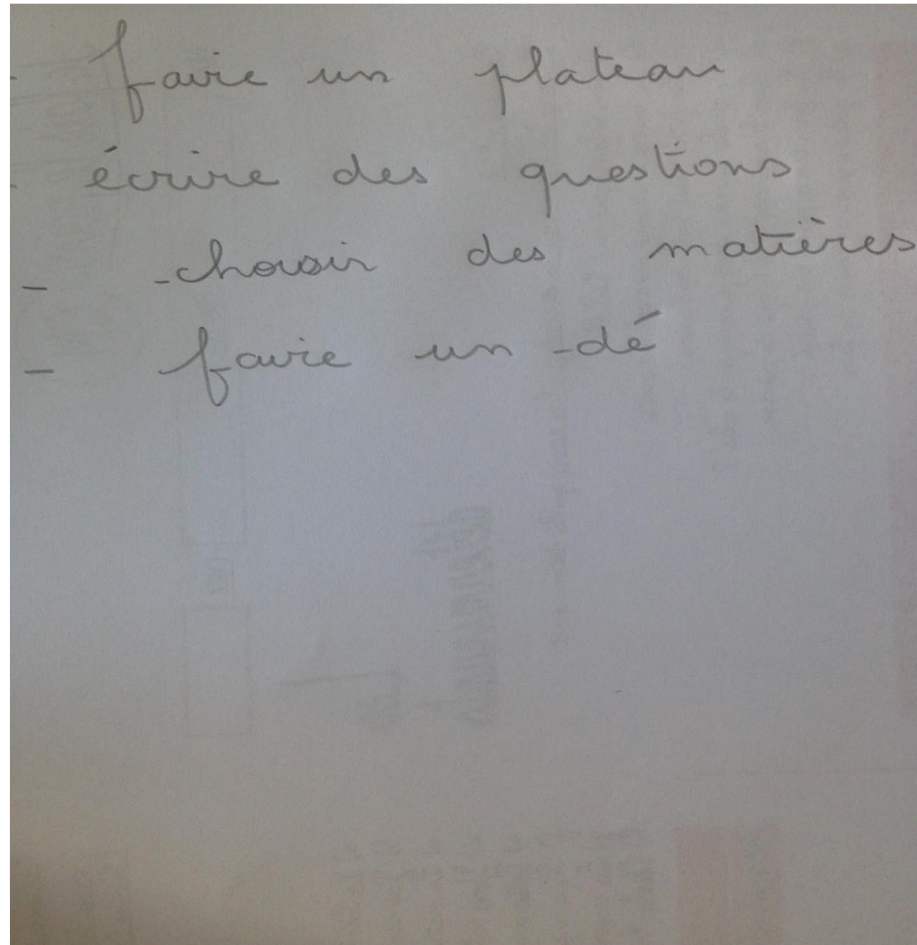 - faire un plateau
- écrire des questions
- choisir des matières
- faire un dé